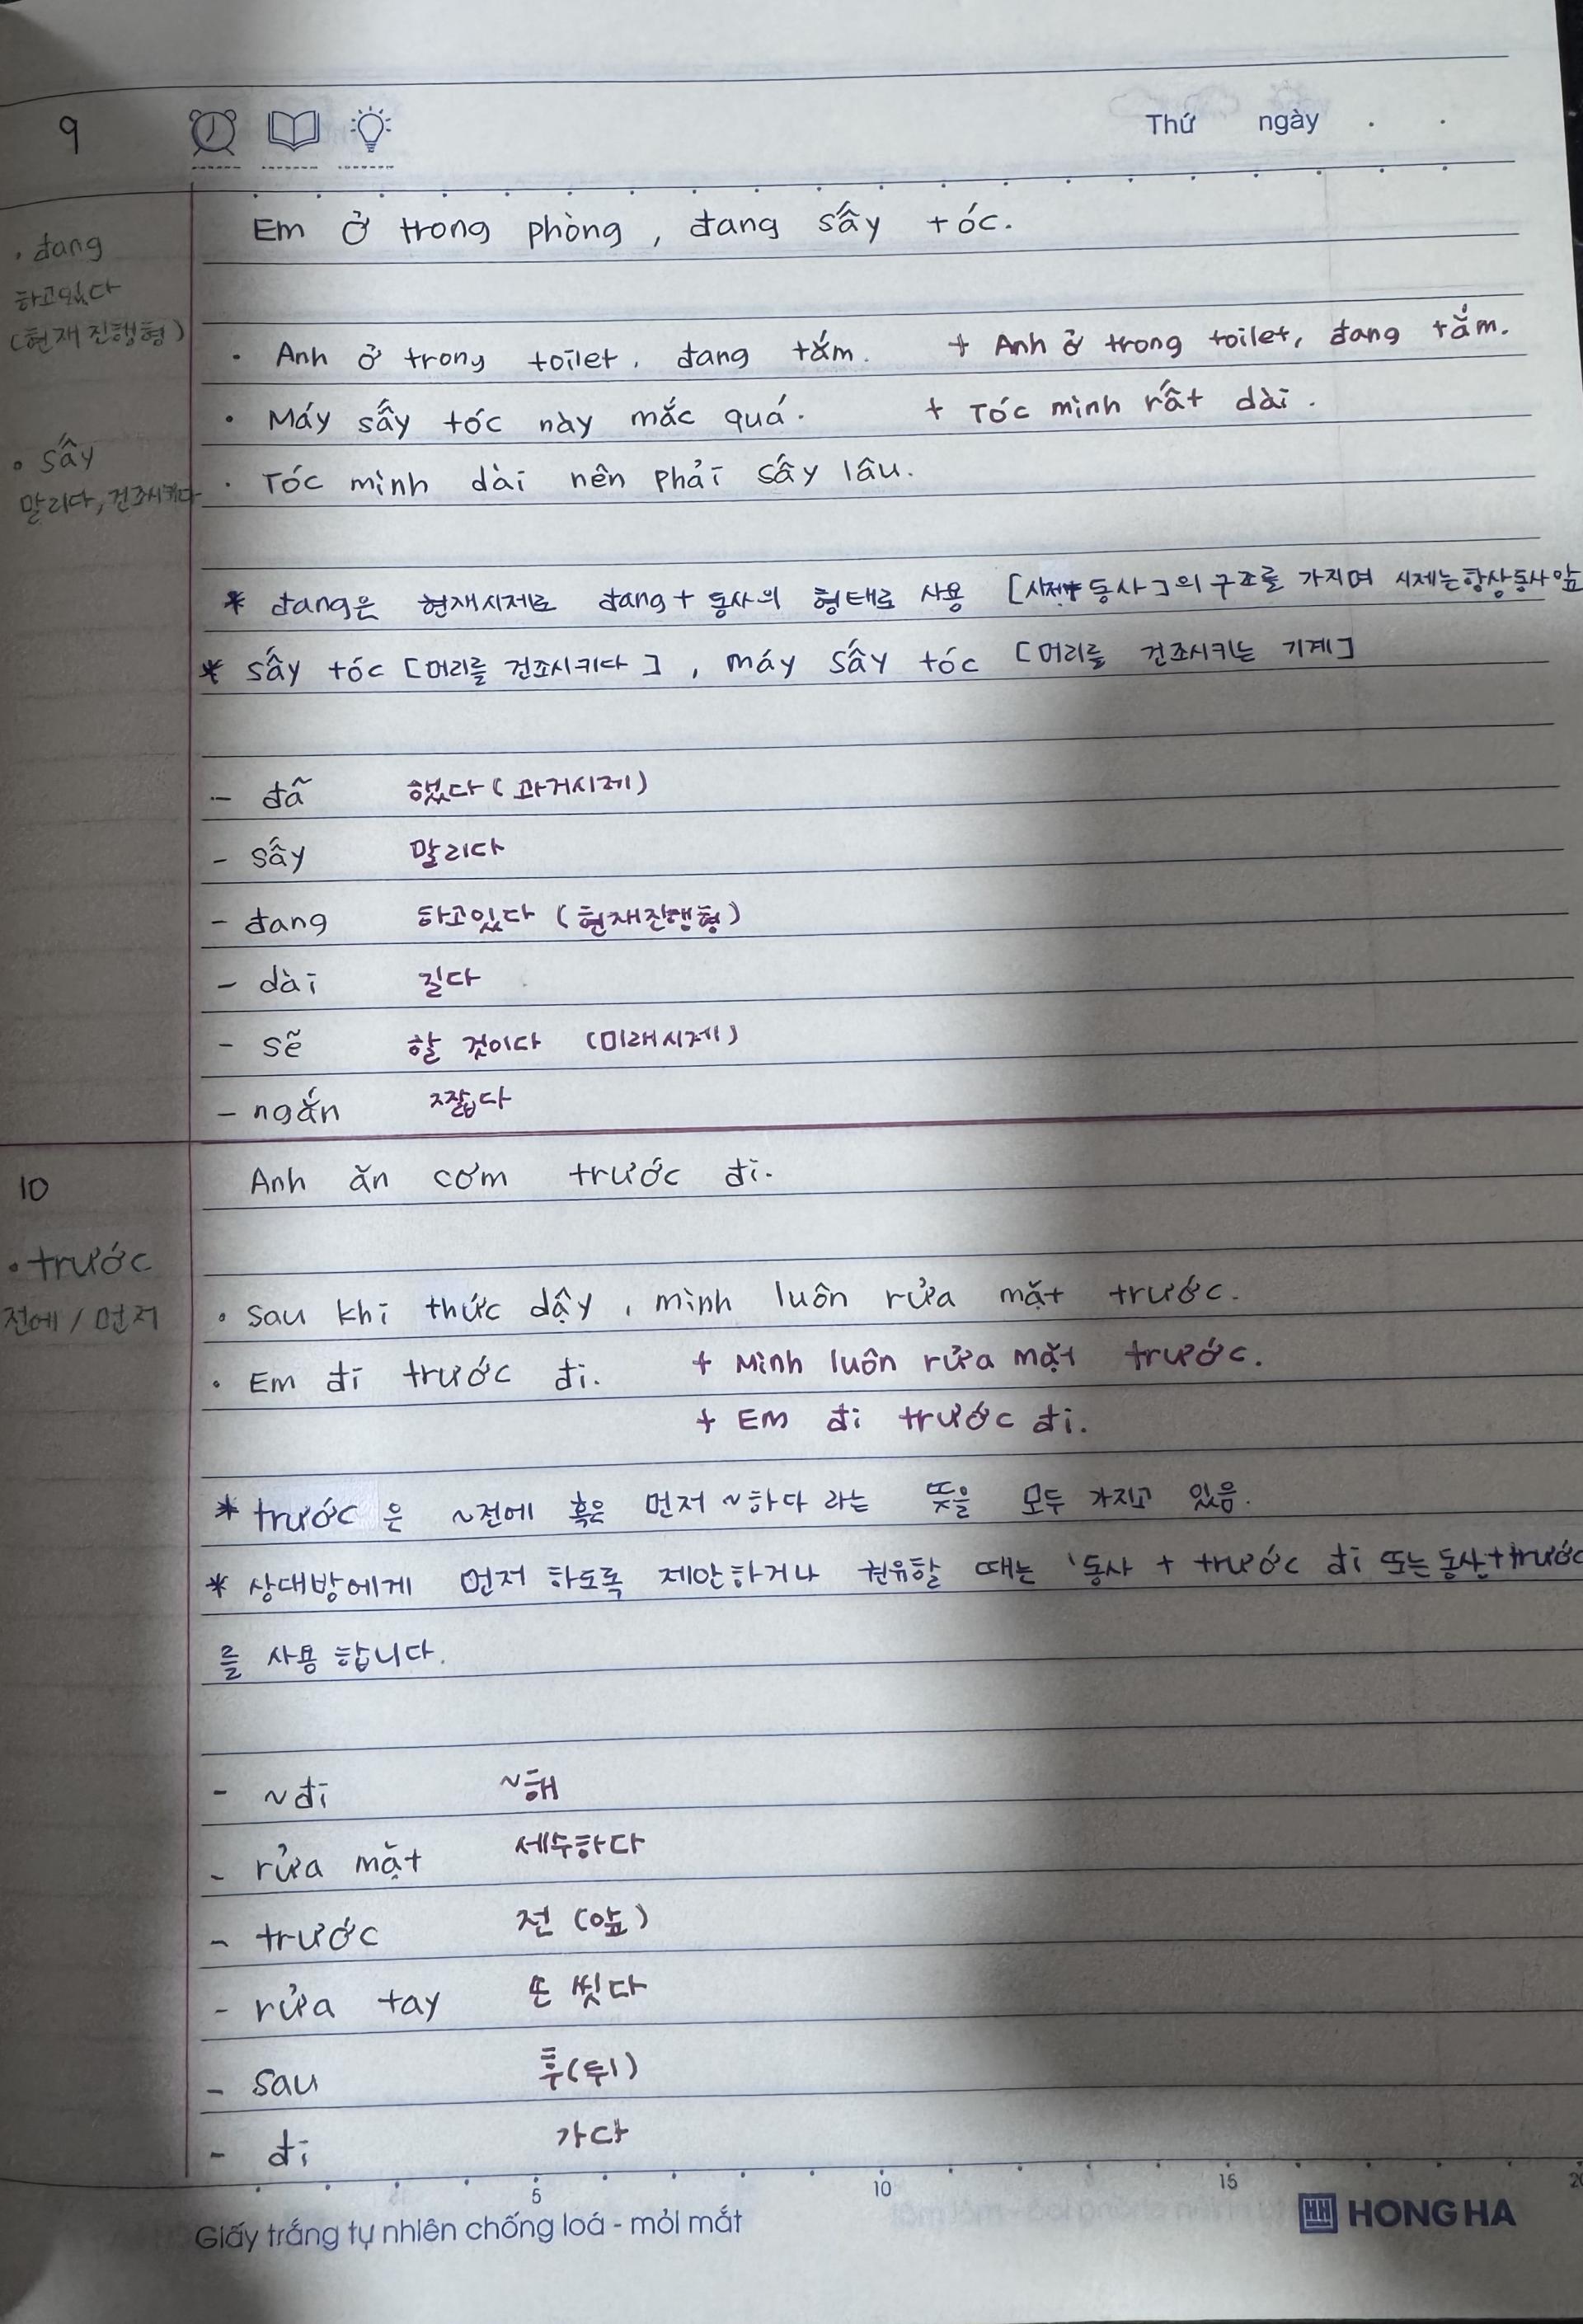 9
Thứ ngày . .
Em ở trong phòng, đang sấy tóc.
• đang
하고있다
(현재 진행형)
• Anh ở trong toilet, đang tắm. + Anh ở trong toilet, đang tắm.
• Máy sấy tóc này mắc quá. + Tóc mình rất dài.
• sấy
말리다, 건조시키다
• Tóc mình dài nên phải sấy lâu.
* đang은 현재시제로 đang + 동사의 형태로 사용 [시제+동사]의 구조를 가지며 시제는 항상 동사 앞
* sấy tóc [머리를 건조시키다], máy sấy tóc [머리를 건조시키는 기계]
- đã 했다 (과거시제)
- sấy 말리다
- đang 하고있다 (현재진행형)
- dài 길다
- sẽ 할 것이다 (미래시제)
- ngắn 짧다
10
Anh ăn cơm trước đi.
• trước
전에 / 먼저
• Sau khi thức dậy, mình luôn rửa mặt trước.
• Em đi trước đi. + Mình luôn rửa mặt trước.
+ Em đi trước đi.
* trước 은 ~전에 혹은 먼저 ~하다 라는 뜻을 모두 가지고 있음.
* 상대방에게 먼저 하도록 제안하거나 권유할 때는 '동사 + trước đi 또는 동사+trước
를 사용 합니다.
- ~đi ~해
- rửa mặt 세수하다
- trước 전 (앞)
- rửa tay 손 씻다
- sau 후(뒤)
- đi 가다
5 10 15 20
Giấy trắng tự nhiên chống loá - mỏi mắt
HH HONG HA